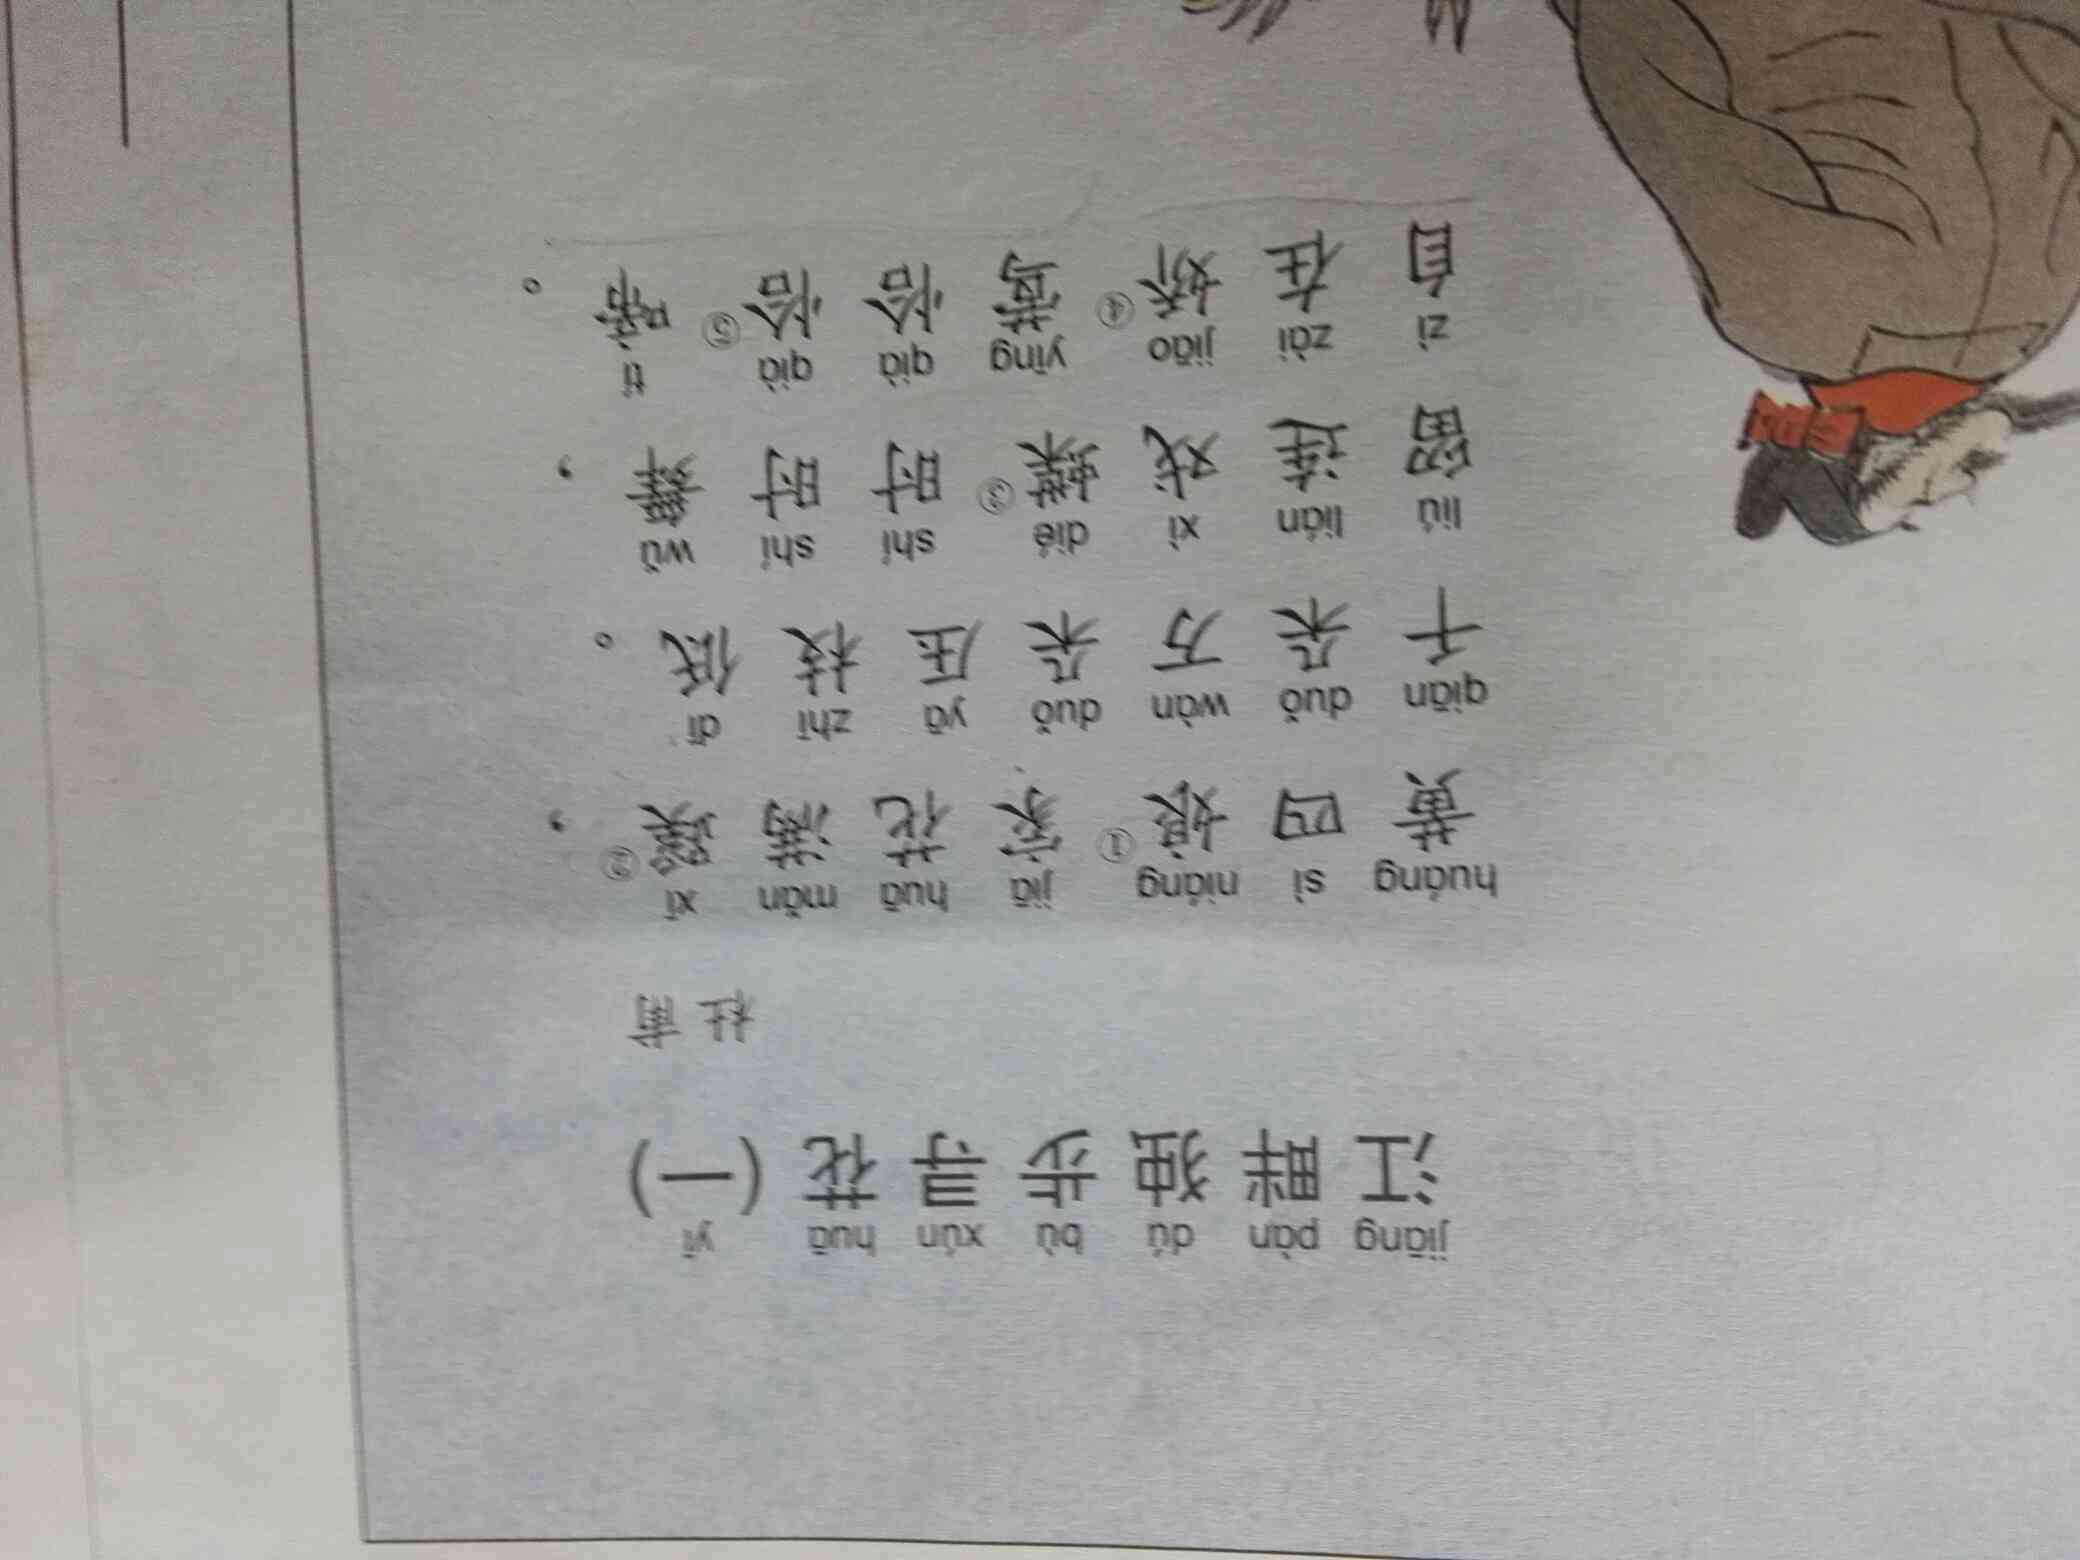 jiāng pàn dú bù xún huā yī
江畔独步寻花(一)
杜甫
huáng sì niáng jiā huā mǎn xī
黄四娘①家花满蹊②，
qiān duǒ wàn duǒ yā zhī dī
千朵万朵压枝低。
liú lián xì dié shí shí wǔ
留连戏蝶③时时舞，
zì zài jiāo yīng qià qià tí
自在娇④莺恰恰⑤啼。